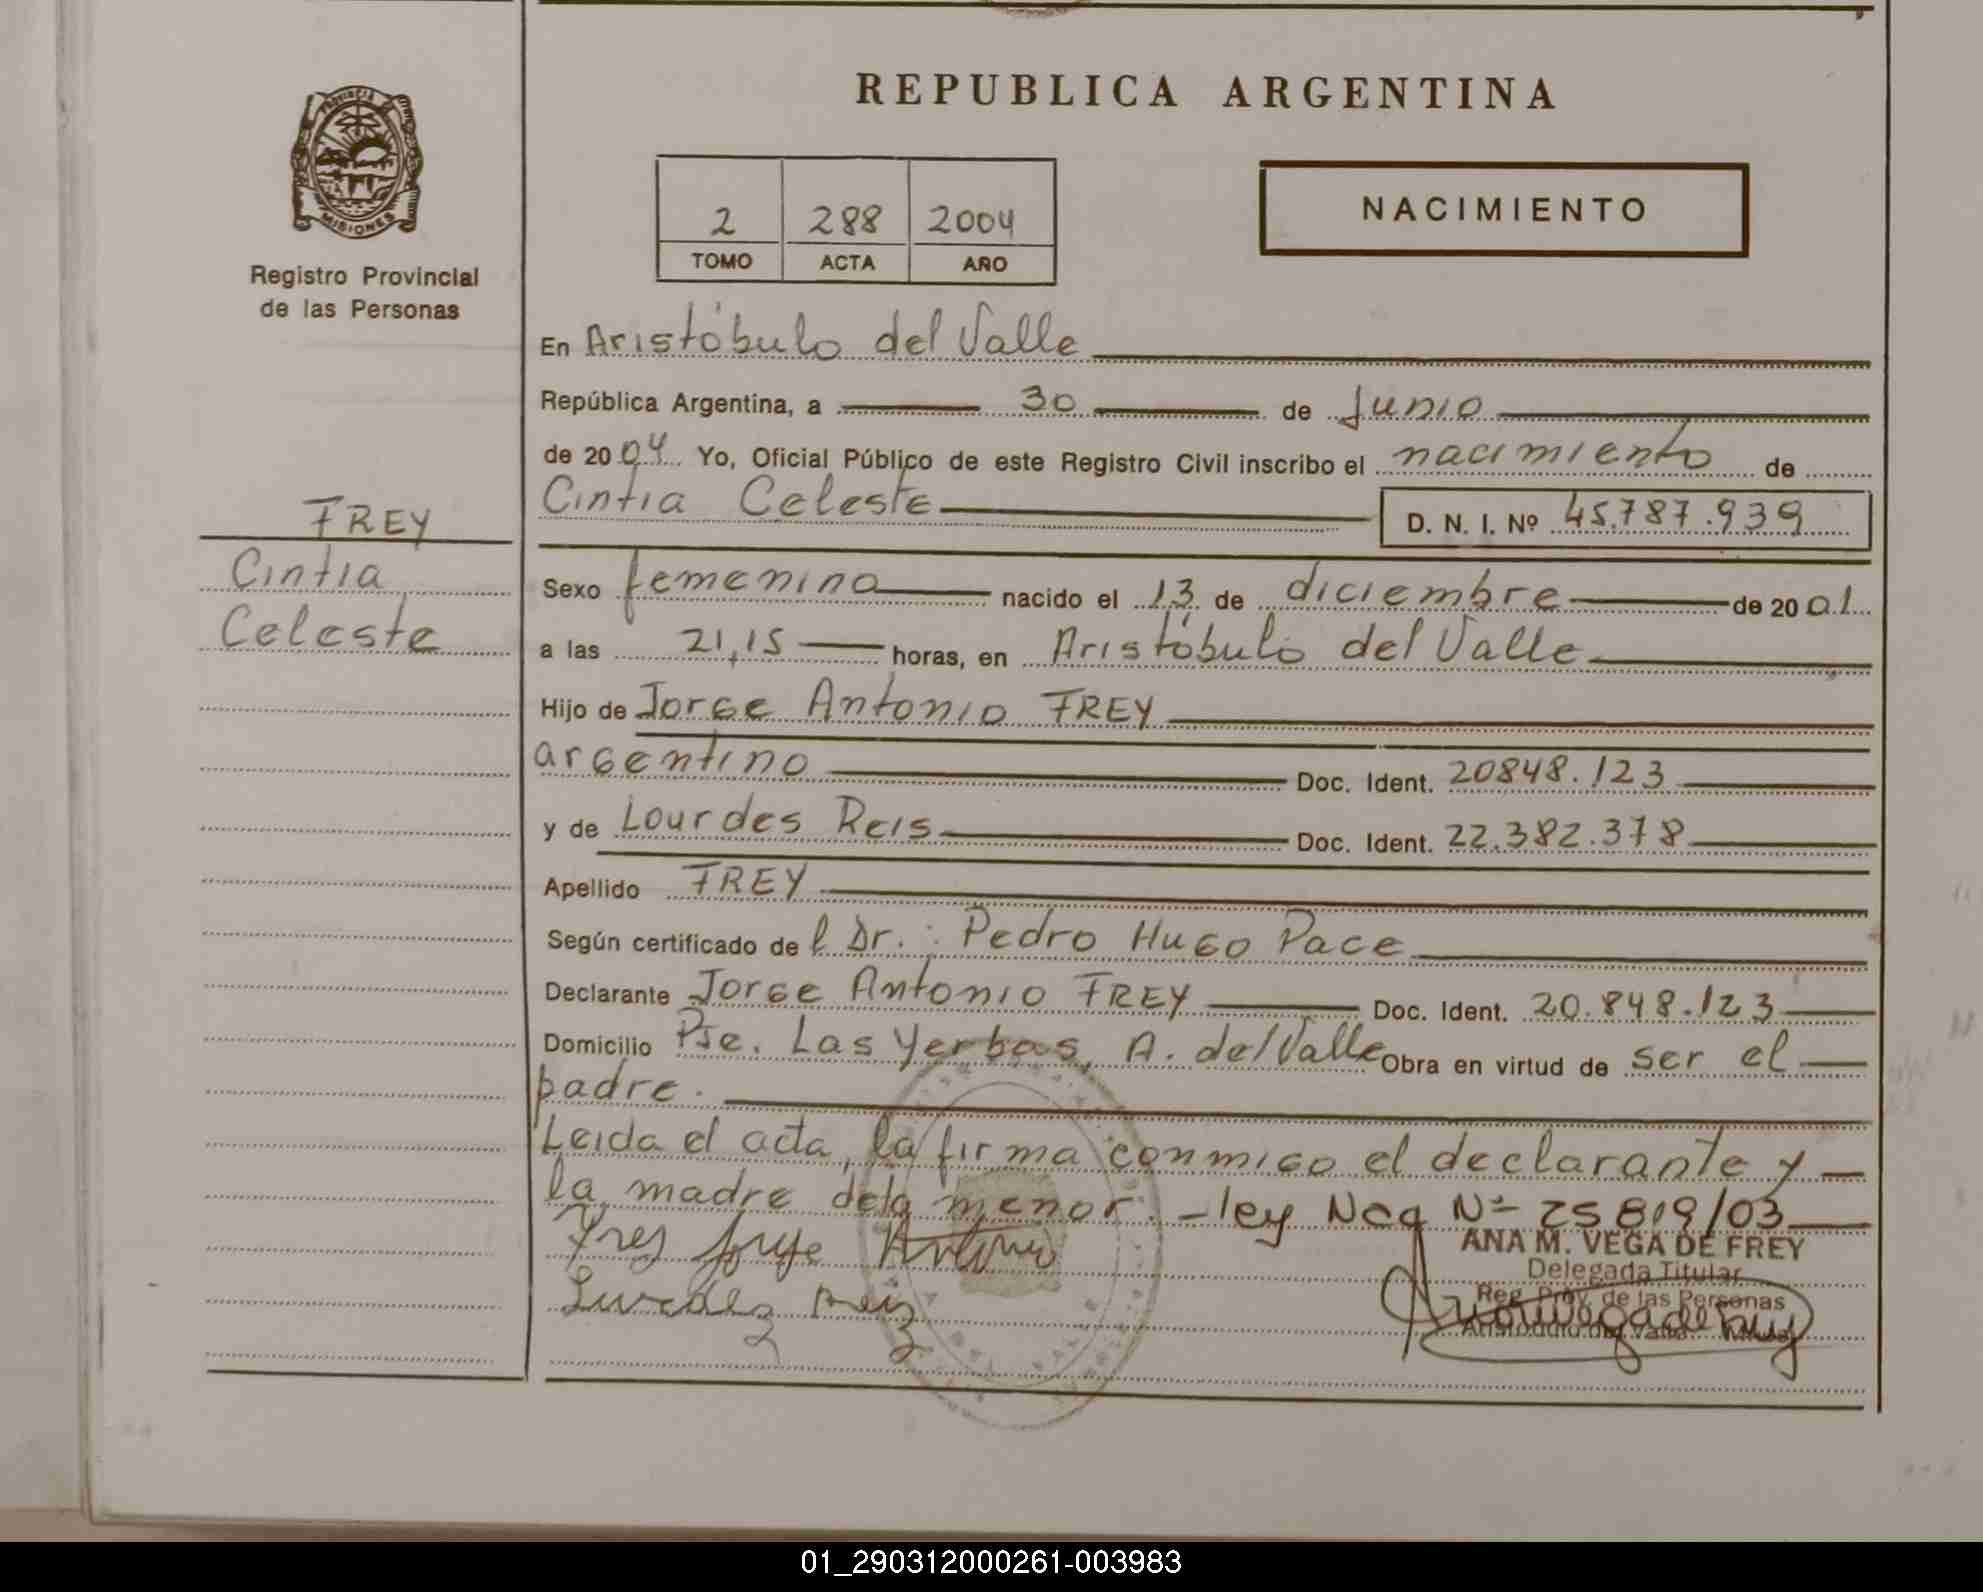 REPUBLICA ARGENTINA
PROVINCIA
MISIONES
Registro Provincial
de las Personas
2 288 2004
TOMO ACTA AÑO
NACIMIENTO
En Aristóbulo del Valle
República Argentina, a 30 de Junio
de 2004 Yo, Oficial Público de este Registro Civil inscribo el nacimiento de
Cintia Celeste D. N. I. Nº 45.787.939
FREY
Cintia
Celeste
Sexo femenino nacido el 13 de diciembre de 2001
a las 21,15 horas, en Aristóbulo del Valle
Hijo de Jorge Antonio FREY
argentino Doc. Ident. 20848.123
y de Lourdes Reis Doc. Ident. 22.382.378
Apellido FREY
Según certificado del Dr.: Pedro Hugo Pace
Declarante Jorge Antonio FREY Doc. Ident. 20.848.123
Domicilio Pje. Las Yerbas, A. del Valle Obra en virtud de ser el
padre.
Leida el acta, la firma conmigo el declarante y
la madre dela menor. - ley Nac Nº 25819/03
Frey Jorge Antonio
ANA M. VEGA DE FREY
Delegada Titular
Reg. Prov. de las Personas
Aristóbulo del Valle
01_290312000261-003983